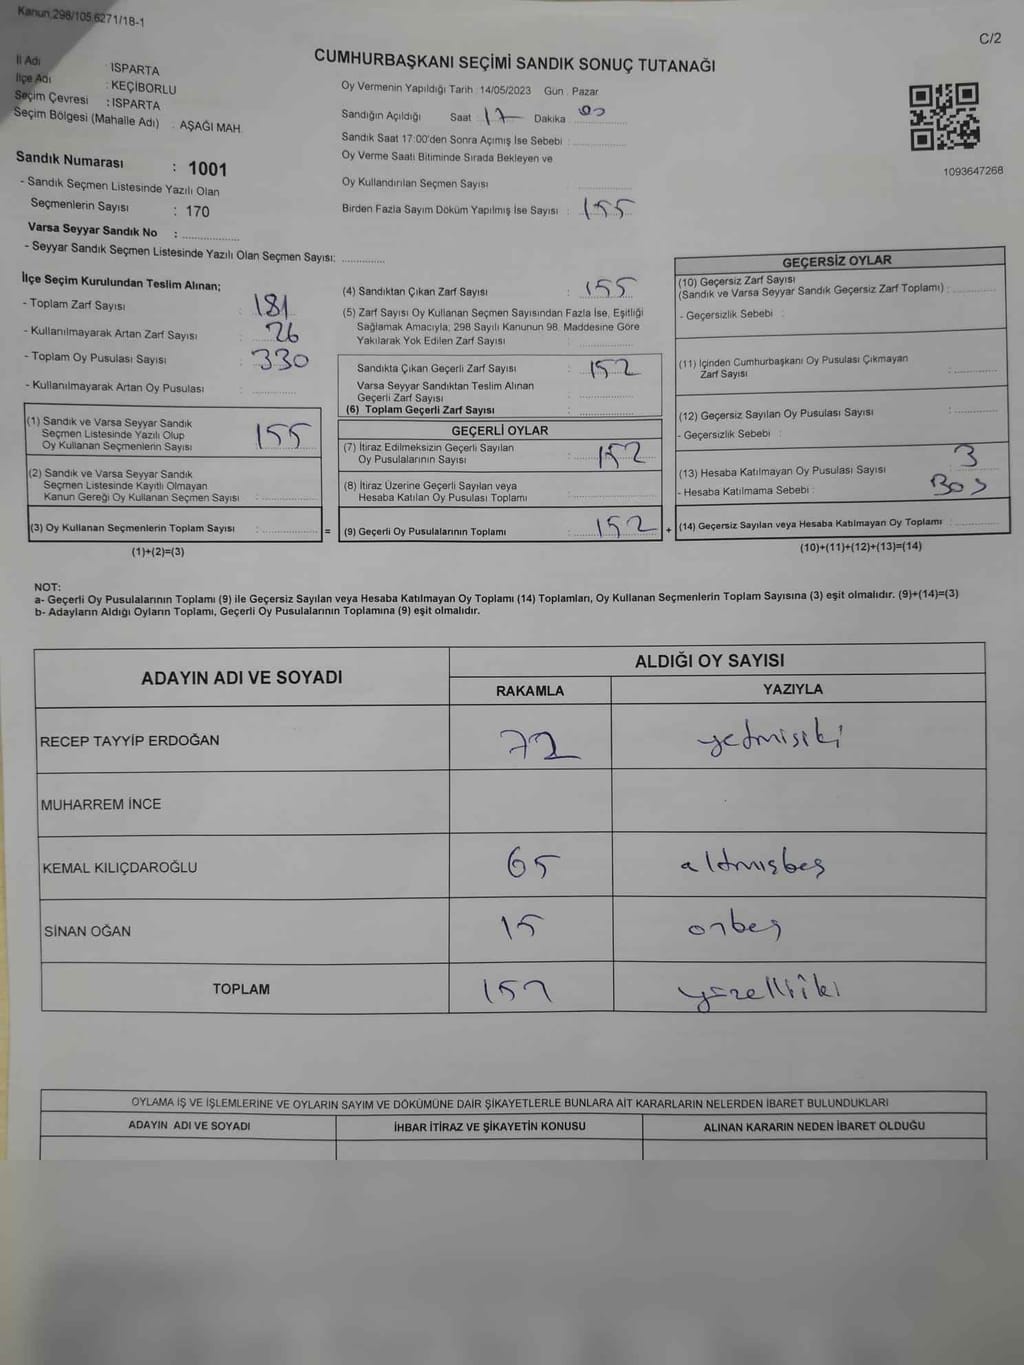 Kanun,298/105,6271/18-1
C/2
CUMHURBAŞKANI SEÇİMİ SANDIK SONUÇ TUTANAĞI
İl Adı : ISPARTA
İlçe Adı : KEÇİBORLU
Seçim Çevresi : ISPARTA
Seçim Bölgesi (Mahalle Adı) : AŞAĞI MAH.
Oy Vermenin Yapıldığı Tarih : 14/05/2023 Gün : Pazar
Sandığın Açıldığı Saat 17 Dakika 00
Sandık Saat 17:00'den Sonra Açımış İse Sebebi :
Oy Verme Saati Bitiminde Sırada Bekleyen ve
Oy Kullandırılan Seçmen Sayısı
Birden Fazla Sayım Döküm Yapılmış İse Sayısı : 155
1093647268
Sandık Numarası : 1001
- Sandık Seçmen Listesinde Yazılı Olan
Seçmenlerin Sayısı : 170
Varsa Seyyar Sandık No :
- Seyyar Sandık Seçmen Listesinde Yazılı Olan Seçmen Sayısı:
İlçe Seçim Kurulundan Teslim Alınan;
- Toplam Zarf Sayısı : 181
- Kullanılmayarak Artan Zarf Sayısı : 26
- Toplam Oy Pusulası Sayısı : 330
- Kullanılmayarak Artan Oy Pusulası :
(1) Sandık ve Varsa Seyyar Sandık
Seçmen Listesinde Yazılı Olup
Oy Kullanan Seçmenlerin Sayısı : 155
(2) Sandık ve Varsa Seyyar Sandık
Seçmen Listesinde Kayıtlı Olmayan
Kanun Gereği Oy Kullanan Seçmen Sayısı :
(3) Oy Kullanan Seçmenlerin Toplam Sayısı :
(1)+(2)=(3)
=
(4) Sandıktan Çıkan Zarf Sayısı : 155
(5) Zarf Sayısı Oy Kullanan Seçmen Sayısından Fazla İse, Eşitliği
Sağlamak Amacıyla; 298 Sayılı Kanunun 98. Maddesine Göre
Yakılarak Yok Edilen Zarf Sayısı :
Sandıkta Çıkan Geçerli Zarf Sayısı : 152
Varsa Seyyar Sandıktan Teslim Alınan
Geçerli Zarf Sayısı :
(6) Toplam Geçerli Zarf Sayısı :
GEÇERLİ OYLAR
(7) İtiraz Edilmeksizin Geçerli Sayılan
Oy Pusulalarının Sayısı : 152
(8) İtiraz Üzerine Geçerli Sayılan veya
Hesaba Katılan Oy Pusulası Toplamı :
(9) Geçerli Oy Pusulalarının Toplamı : 152
+
GEÇERSİZ OYLAR
(10) Geçersiz Zarf Sayısı
(Sandık ve Varsa Seyyar Sandık Geçersiz Zarf Toplamı) :
- Geçersizlik Sebebi :
(11) İçinden Cumhurbaşkanı Oy Pusulası Çıkmayan
Zarf Sayısı :
(12) Geçersiz Sayılan Oy Pusulası Sayısı :
- Geçersizlik Sebebi :
(13) Hesaba Katılmayan Oy Pusulası Sayısı : 3
- Hesaba Katılmama Sebebi : Boş
(14) Geçersiz Sayılan veya Hesaba Katılmayan Oy Toplamı :
(10)+(11)+(12)+(13)=(14)
NOT:
a- Geçerli Oy Pusulalarının Toplamı (9) ile Geçersiz Sayılan veya Hesaba Katılmayan Oy Toplamı (14) Toplamları, Oy Kullanan Seçmenlerin Toplam Sayısına (3) eşit olmalıdır. (9)+(14)=(3)
b- Adayların Aldığı Oyların Toplamı, Geçerli Oy Pusulalarının Toplamına (9) eşit olmalıdır.
ADAYIN ADI VE SOYADI
ALDIĞI OY SAYISI
RAKAMLA YAZIYLA
RECEP TAYYİP ERDOĞAN 72 yetmişiki
MUHARREM İNCE
KEMAL KILIÇDAROĞLU 65 altmışbeş
SİNAN OĞAN 15 onbeş
TOPLAM 152 yüzelliiki
OYLAMA İŞ VE İŞLEMLERİNE VE OYLARIN SAYIM VE DÖKÜMÜNE DAİR ŞİKAYETLERLE BUNLARA AİT KARARLARIN NELERDEN İBARET BULUNDUKLARI
ADAYIN ADI VE SOYADI İHBAR İTİRAZ VE ŞİKAYETİN KONUSU ALINAN KARARIN NEDEN İBARET OLDUĞU